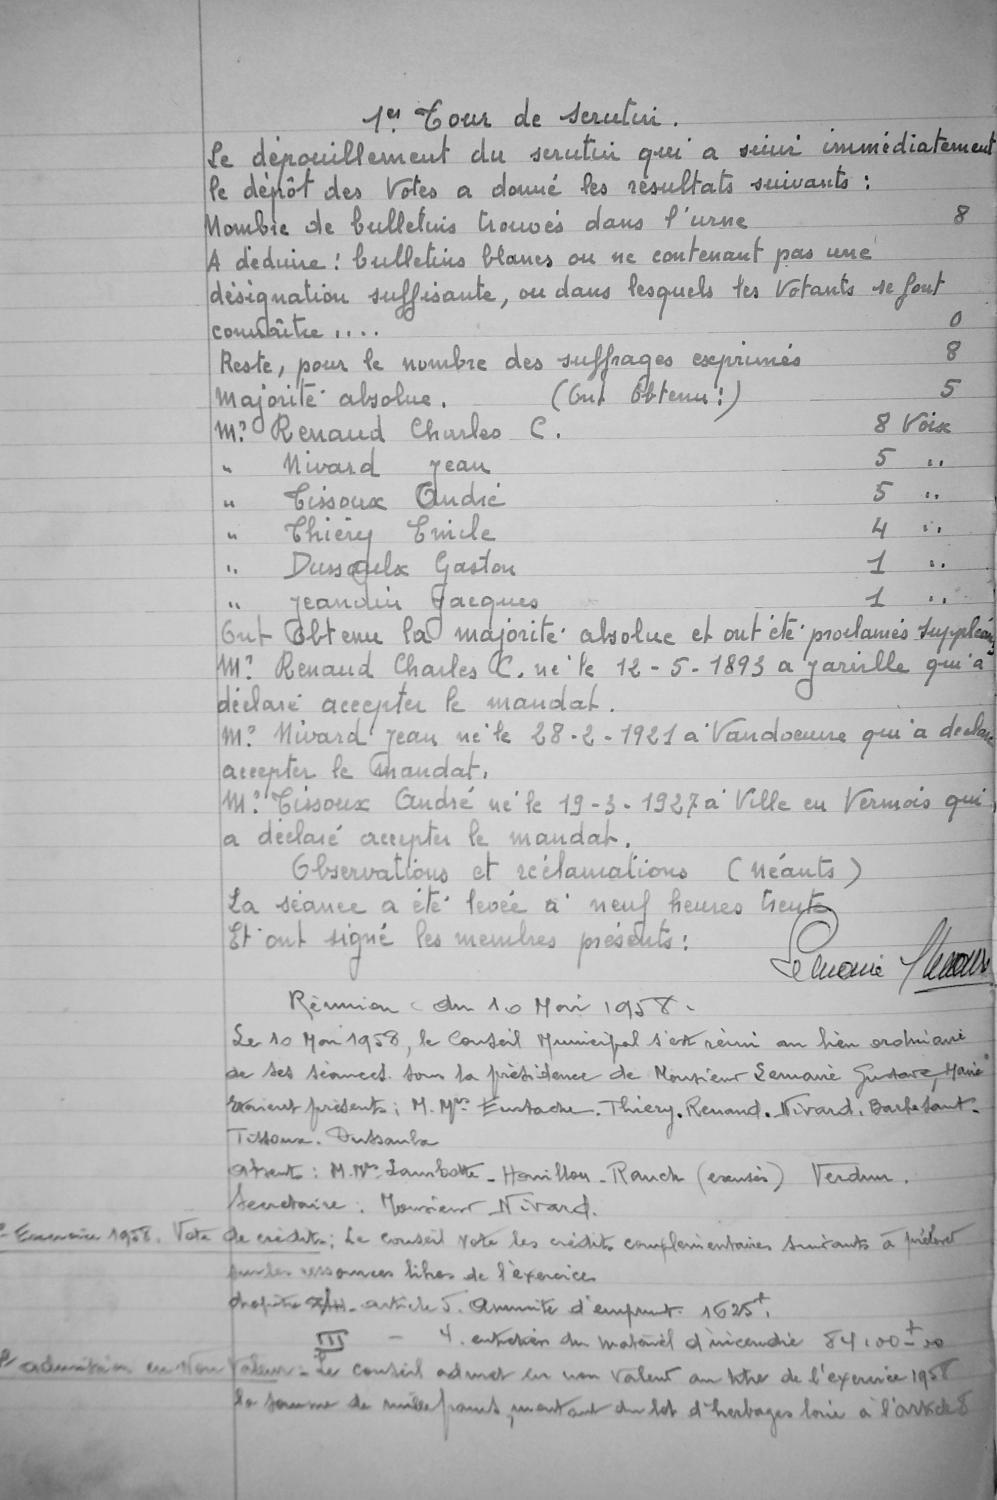 1er Tour de scrutin.
Le dépouillement du scrutin qui a suivi immédiatement
le dépôt des Votes a donné les résultats suivants :
Nombre de bulletins trouvés dans l'urne 8
A déduire : bulletins blancs ou ne contenant pas une
désignation suffisante, ou dans lesquels les Votants se font
connaître .... 0
Reste, pour le nombre des suffrages exprimés 8
Majorité absolue. (Ont Obtenu :) 5
Mr Renaud Charles C. 8 Voix
" Nivard Jean 5 "
" Tissoux André 5 "
" Thiéry Emile 4 "
" Dussaulx Gaston 1 "
" Jeandin Jacques 1 "
Ont Obtenu la majorité absolue et ont été proclamés suppléants
Mr Renaud Charles C. né le 12-5-1893 a Jarville qui a
déclaré accepter le mandat.
Mr Nivard Jean né le 28-2-1921 a Vandoeuvre qui a déclaré
accepter le mandat.
Mr Tissoux André né le 19-3-1927 a Ville en Vermois qui
a déclaré accepter le mandat.
Observations et réclamations (Néants)
La séance a été levée a neuf heures trente
Et ont signé les membres présents :
Lemarié
Réunion du 10 Mai 1958.
Le 10 Mai 1958, le Conseil Municipal s'est réuni au lieu ordinaire
de ses séances sous la présidence de Monsieur Lemarié Gustave, Maire
Etaient présents : M. Mrs Eustache. Thiéry. Renaud. Nivard. Barbesant.
Tissoux. Dussaulx
Absents : M. Mrs Lambotte - Houillon - Rauch (excusés) Verdun.
Secrétaire : Monsieur Nivard.
Exercice 1958. Vote de crédits ; Le conseil vote les crédits complémentaires suivants à prélever
sur les ressources libres de l'exercice
chapitre article 5. Annuité d'emprunt. 1625f.
III - 4. entretien du matériel d'incendie 84100f00
admission en Non Valeur - Le conseil admet en non valeur au titre de l'exercice 1958
la somme de mille francs, montant du lot d'herbages loué à l'article 8